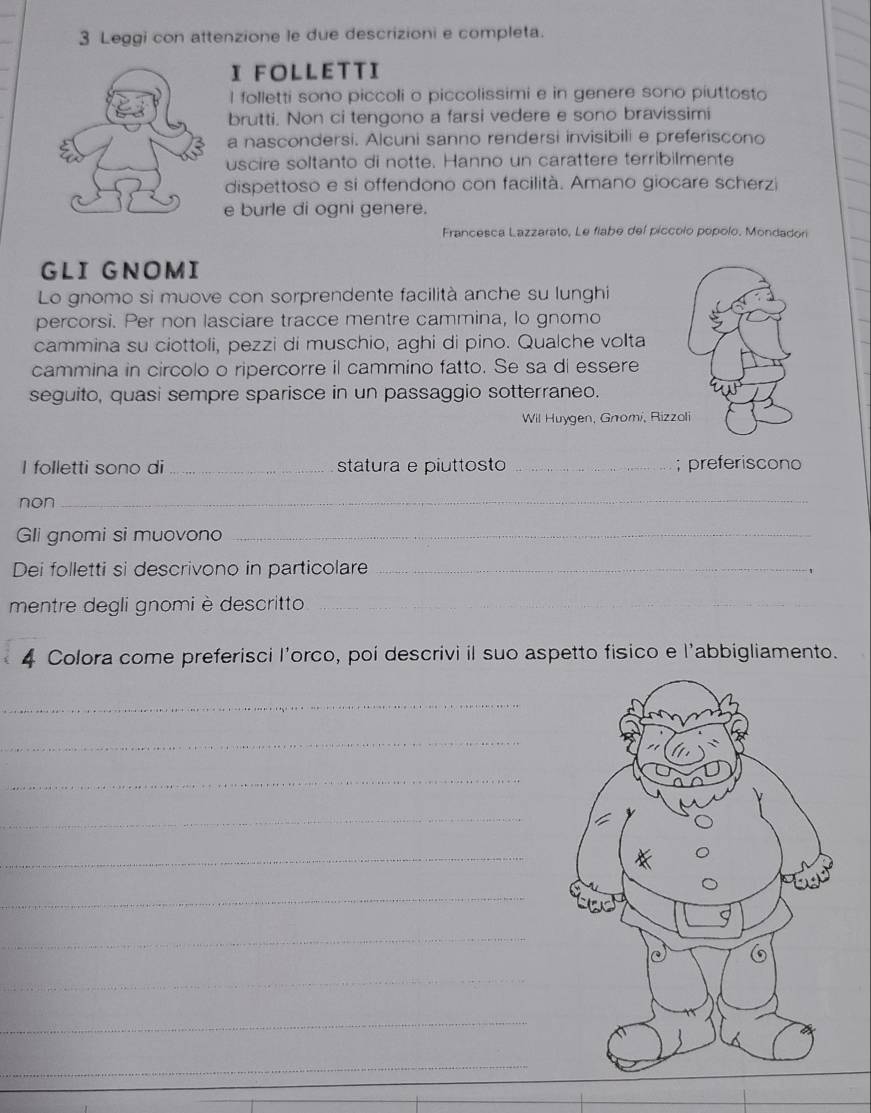 3 Leggi con attenzione le due descrizioni e completa.
I FOLLETTI
I folletti sono piccoli o piccolissimi e in genere sono piuttosto
brutti. Non ci tengono a farsi vedere e sono bravissimi
a nascondersi. Alcuni sanno rendersi invisibili e preferiscono
uscire soltanto di notte. Hanno un carattere terribilmente
dispettoso e si offendono con facilità. Amano giocare scherzi
e burle di ogni genere.
Francesca Lazzarato, Le fiabe del piccolo popolo, Mondadori
GLI GNOMI
Lo gnomo si muove con sorprendente facilità anche su lunghi
percorsi. Per non lasciare tracce mentre cammina, lo gnomo
cammina su ciottoli, pezzi di muschio, aghi di pino. Qualche volta
cammina in circolo o ripercorre il cammino fatto. Se sa di essere
seguito, quasi sempre sparisce in un passaggio sotterraneo.
Wil Huygen, Gnomi, Rizzoli
I folletti sono di ........ statura e piuttosto ........ ; preferiscono
non ........
Gli gnomi si muovono ........
Dei folletti si descrivono in particolare ........ ,
mentre degli gnomi è descritto ........
4 Colora come preferisci l'orco, poi descrivi il suo aspetto fisico e l'abbigliamento.